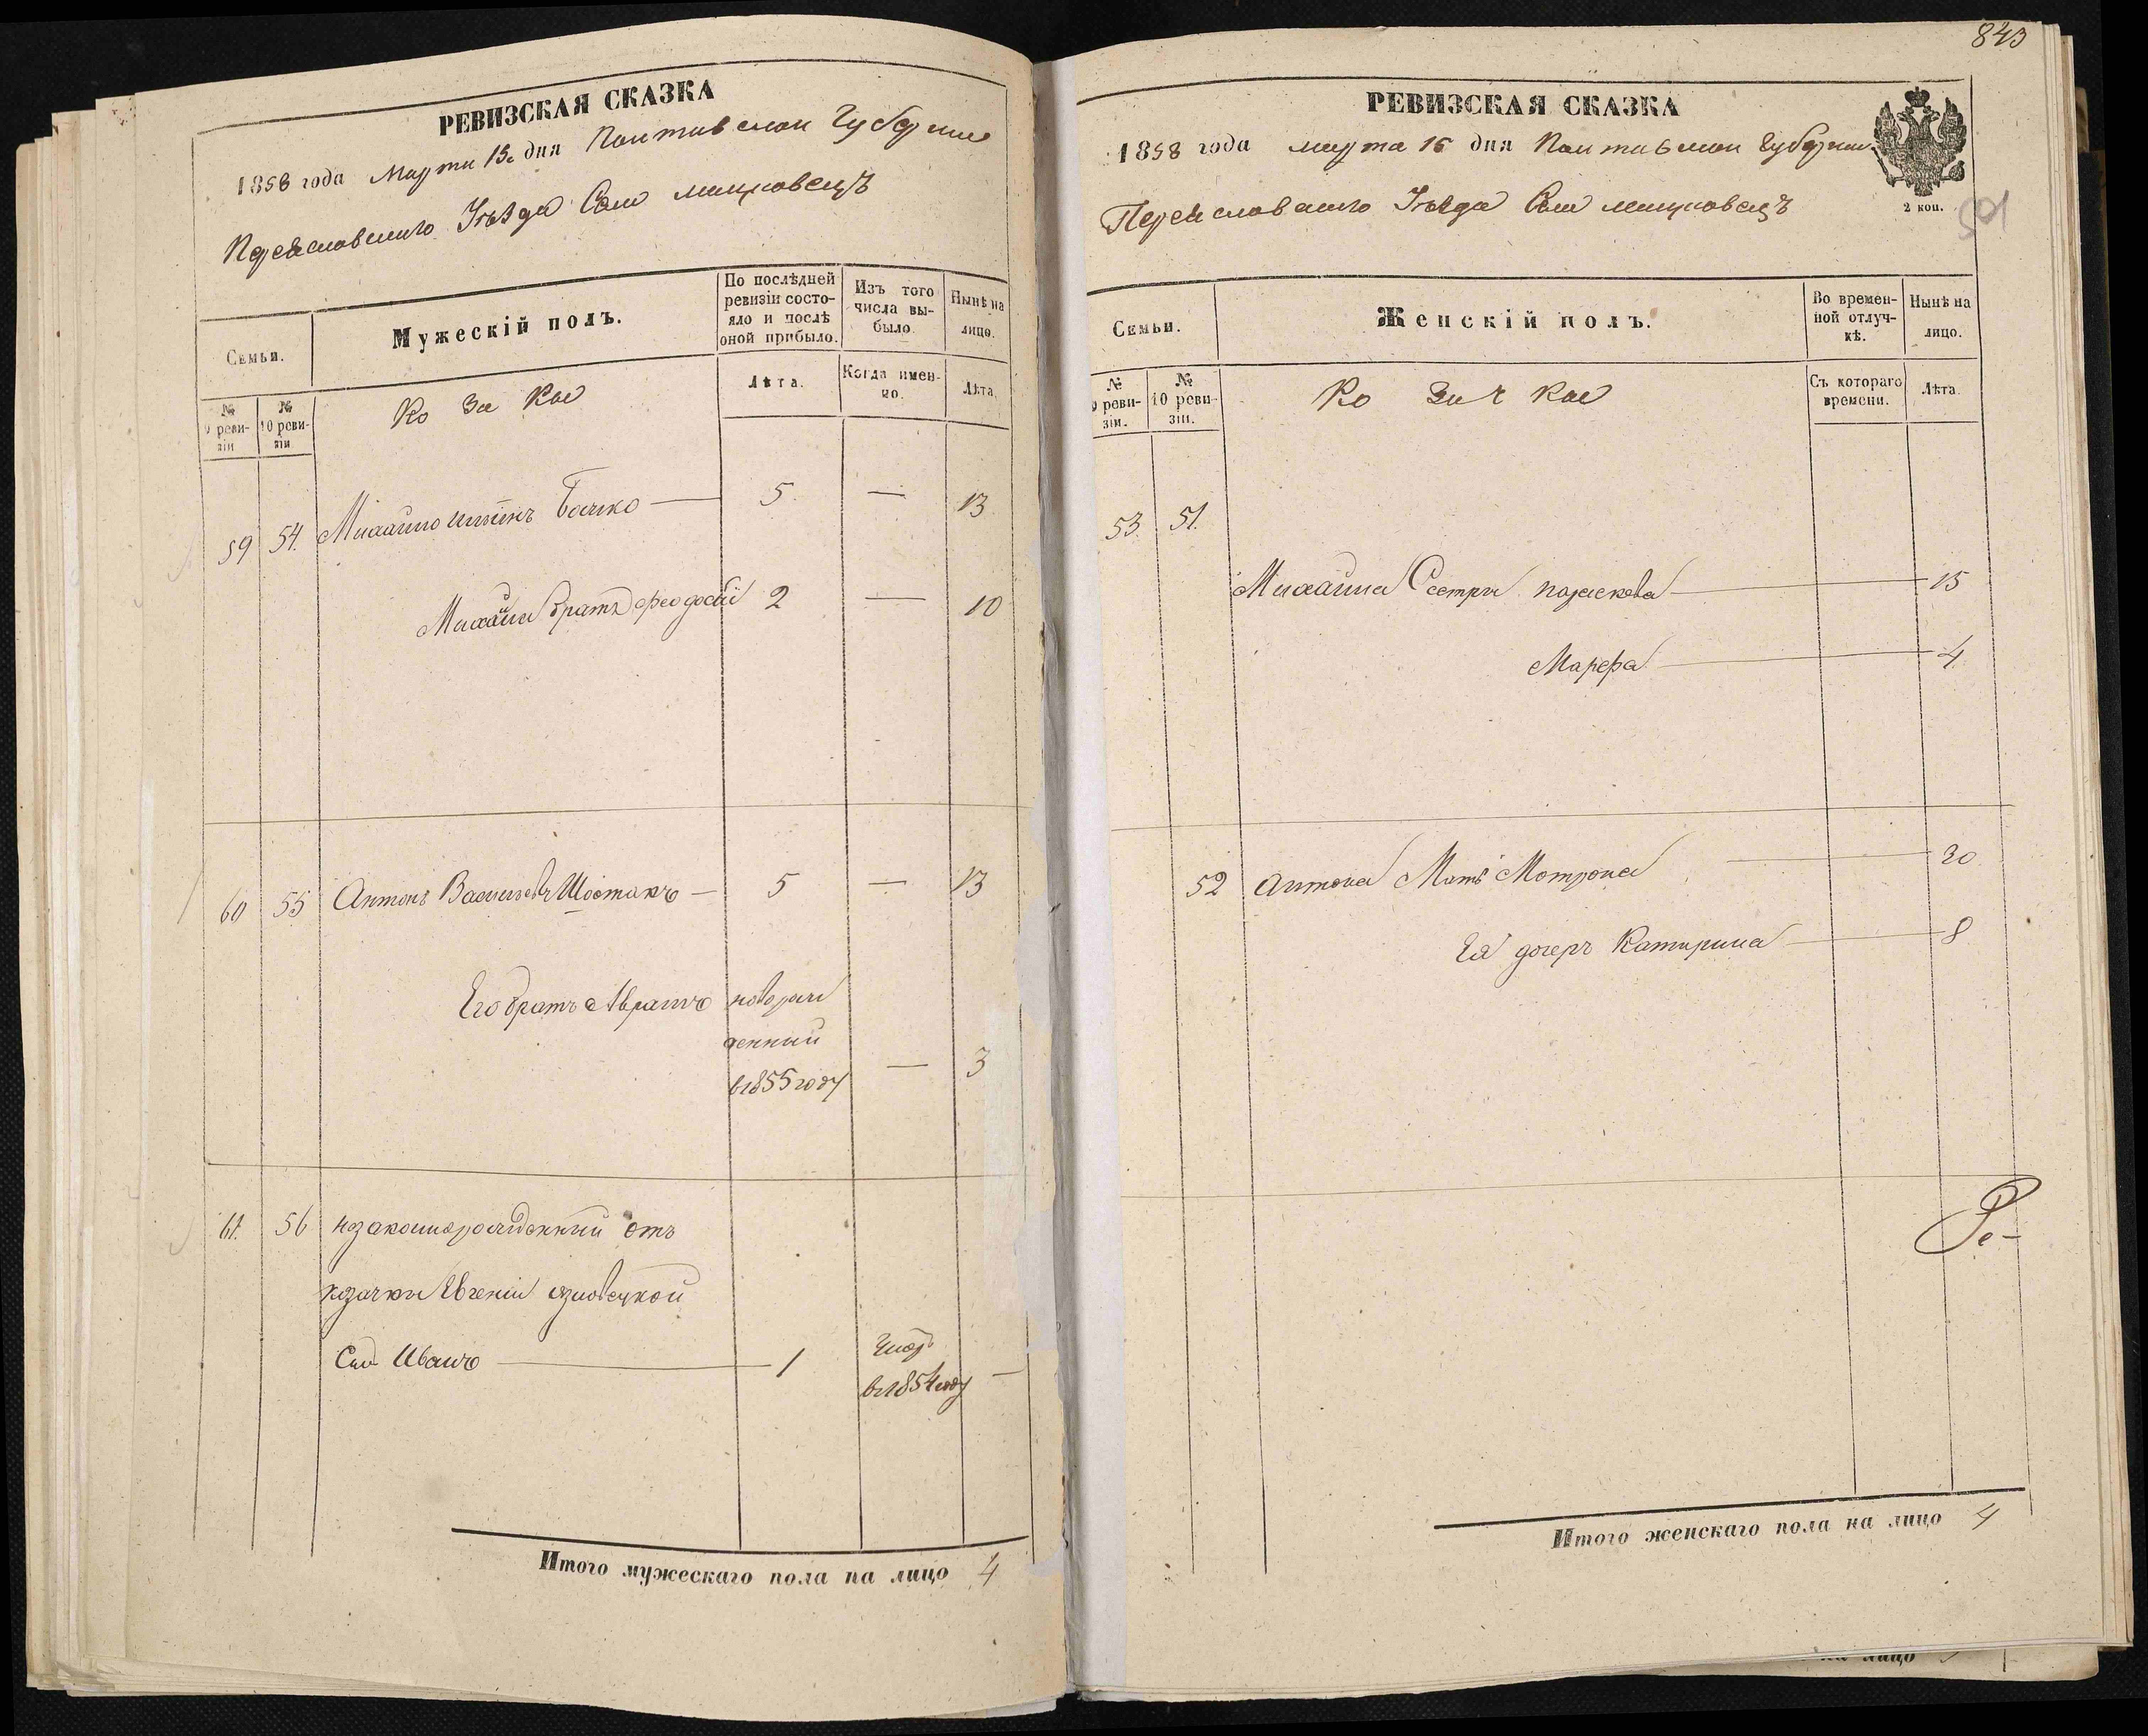 РЕВИЗСКАЯ СКАЗКА
1858 года Марта 15 дня Полтавской Губернии
Переяславского Уѣзда Села
Семьи.
Мужескій полъ.
По послѣдней ревизіи состояло и послѣ оной прибыло.
Изъ того числа выбыло.
Нынѣ на лицо.
№ 9 ревизіи
№ 10 ревизіи
Козаки
Лѣта.
Когда именно.
Лѣта.
59 54. Михайло Бачко — 5 — 13
Михайла братъ Феодосій 2 — 10
60 55 Антонъ Васильевъ Шостакъ — 5 — 13
Его братъ Аврамъ новорож
денный
в 1855 году — 3
61. 56 незаконнорожденный отъ
козачки Евгеніи
Сын Иванъ — 1 умер
в 1854 году —
Итого мужескаго пола на лицо 4
843
РЕВИЗСКАЯ СКАЗКА
1858 года марта 15 дня Полтавской Губернии
Переяславского Уѣзда Села
2 коп.
501
Семьи.
Женскій полъ.
Во временной отлучкѣ.
Нынѣ на лицо.
№ 9 ревизіи.
№ 10 ревизіи.
Козачки
Съ котораго времени.
Лѣта.
53. 51.
Михайла Сестры — 15
Марфа — 4
52 Антона Мать Мотрона — 30
Ея дочеръ Катирина — 8
Ре-
Итого женскаго пола на лицо 4